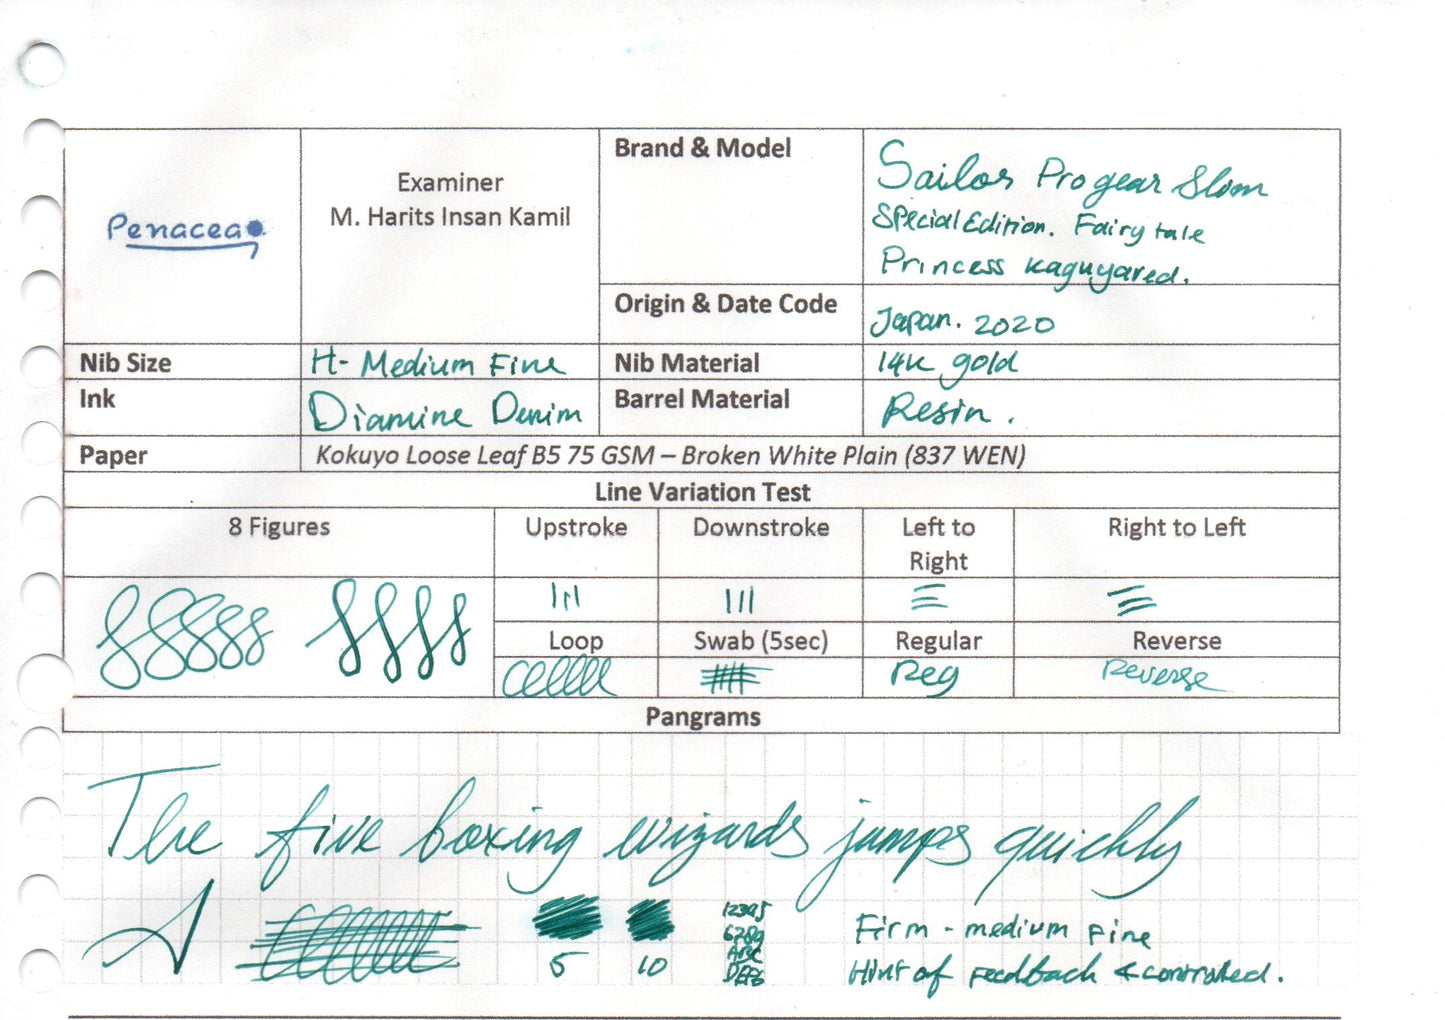 Penacea
Examiner
M. Harits Insan Kamil
Brand & Model
Sailor Pro gear Slim
Special Edition. Fairy tale
Princess Kaguyared.
Origin & Date Code
Japan. 2020
Nib Size
H- Medium Fine
Nib Material
14K gold
Ink
Diamine Denim
Barrel Material
Resin.
Paper
Kokuyo Loose Leaf B5 75 GSM – Broken White Plain (837 WEN)
Line Variation Test
8 Figures
Upstroke
Downstroke
Left to
Right
Right to Left
Loop
Swab (5sec)
Regular
Reverse
Reg
Reverse
Pangrams
The five boxing wizards jumps quickly
5
10
12345
6789
ABC
DEFG
Firm - medium fine
Hint of feedback & controlled.